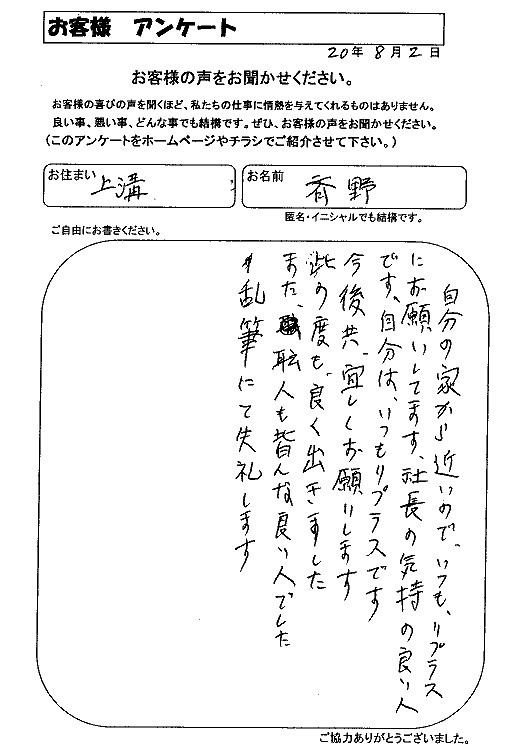 お客様　アンケート
20年 8月 2日
お客様の声をお聞かせください。
お客様の喜びの声を聞くほど、私たちの仕事に情熱を与えてくれるものはありません。
良い事、悪い事、どんな事でも結構です。ぜひ、お客様の声をお聞かせください。
(このアンケートをホームページやチラシでご紹介させて下さい。)
お住まい 上溝
お名前 斎野
匿名・イニシャルでも結構です。
ご自由にお書きください。
自分の家から近いので、いつも、リプラス
にお願いしてます、社長の気持の良い人
です、自分は、いつもリプラスです
今後共、宜しくお願いします
此の度も、良く出来ました
また、職人も皆んな良い人でした
乱筆にて失礼します
ご協力ありがとうございました。